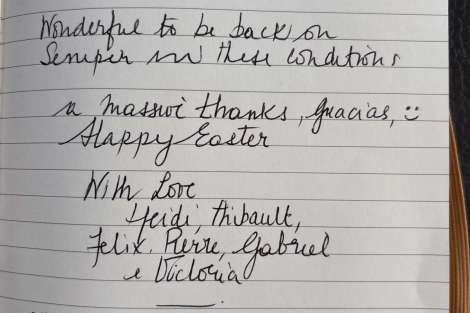 Wonderful to be back on
Semper in these conditions
a massive thanks, Gracias, :)
Happy Easter
With Love
Heidi, Thibault,
Felix, Pierre, Gabriel
e Victoria